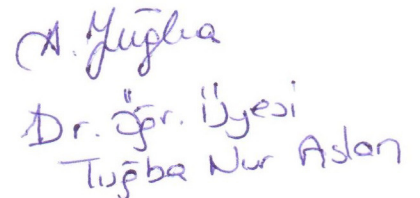 A. Tuğba
Dr. Öğr. Üyesi
Tuğba Nur Aslan